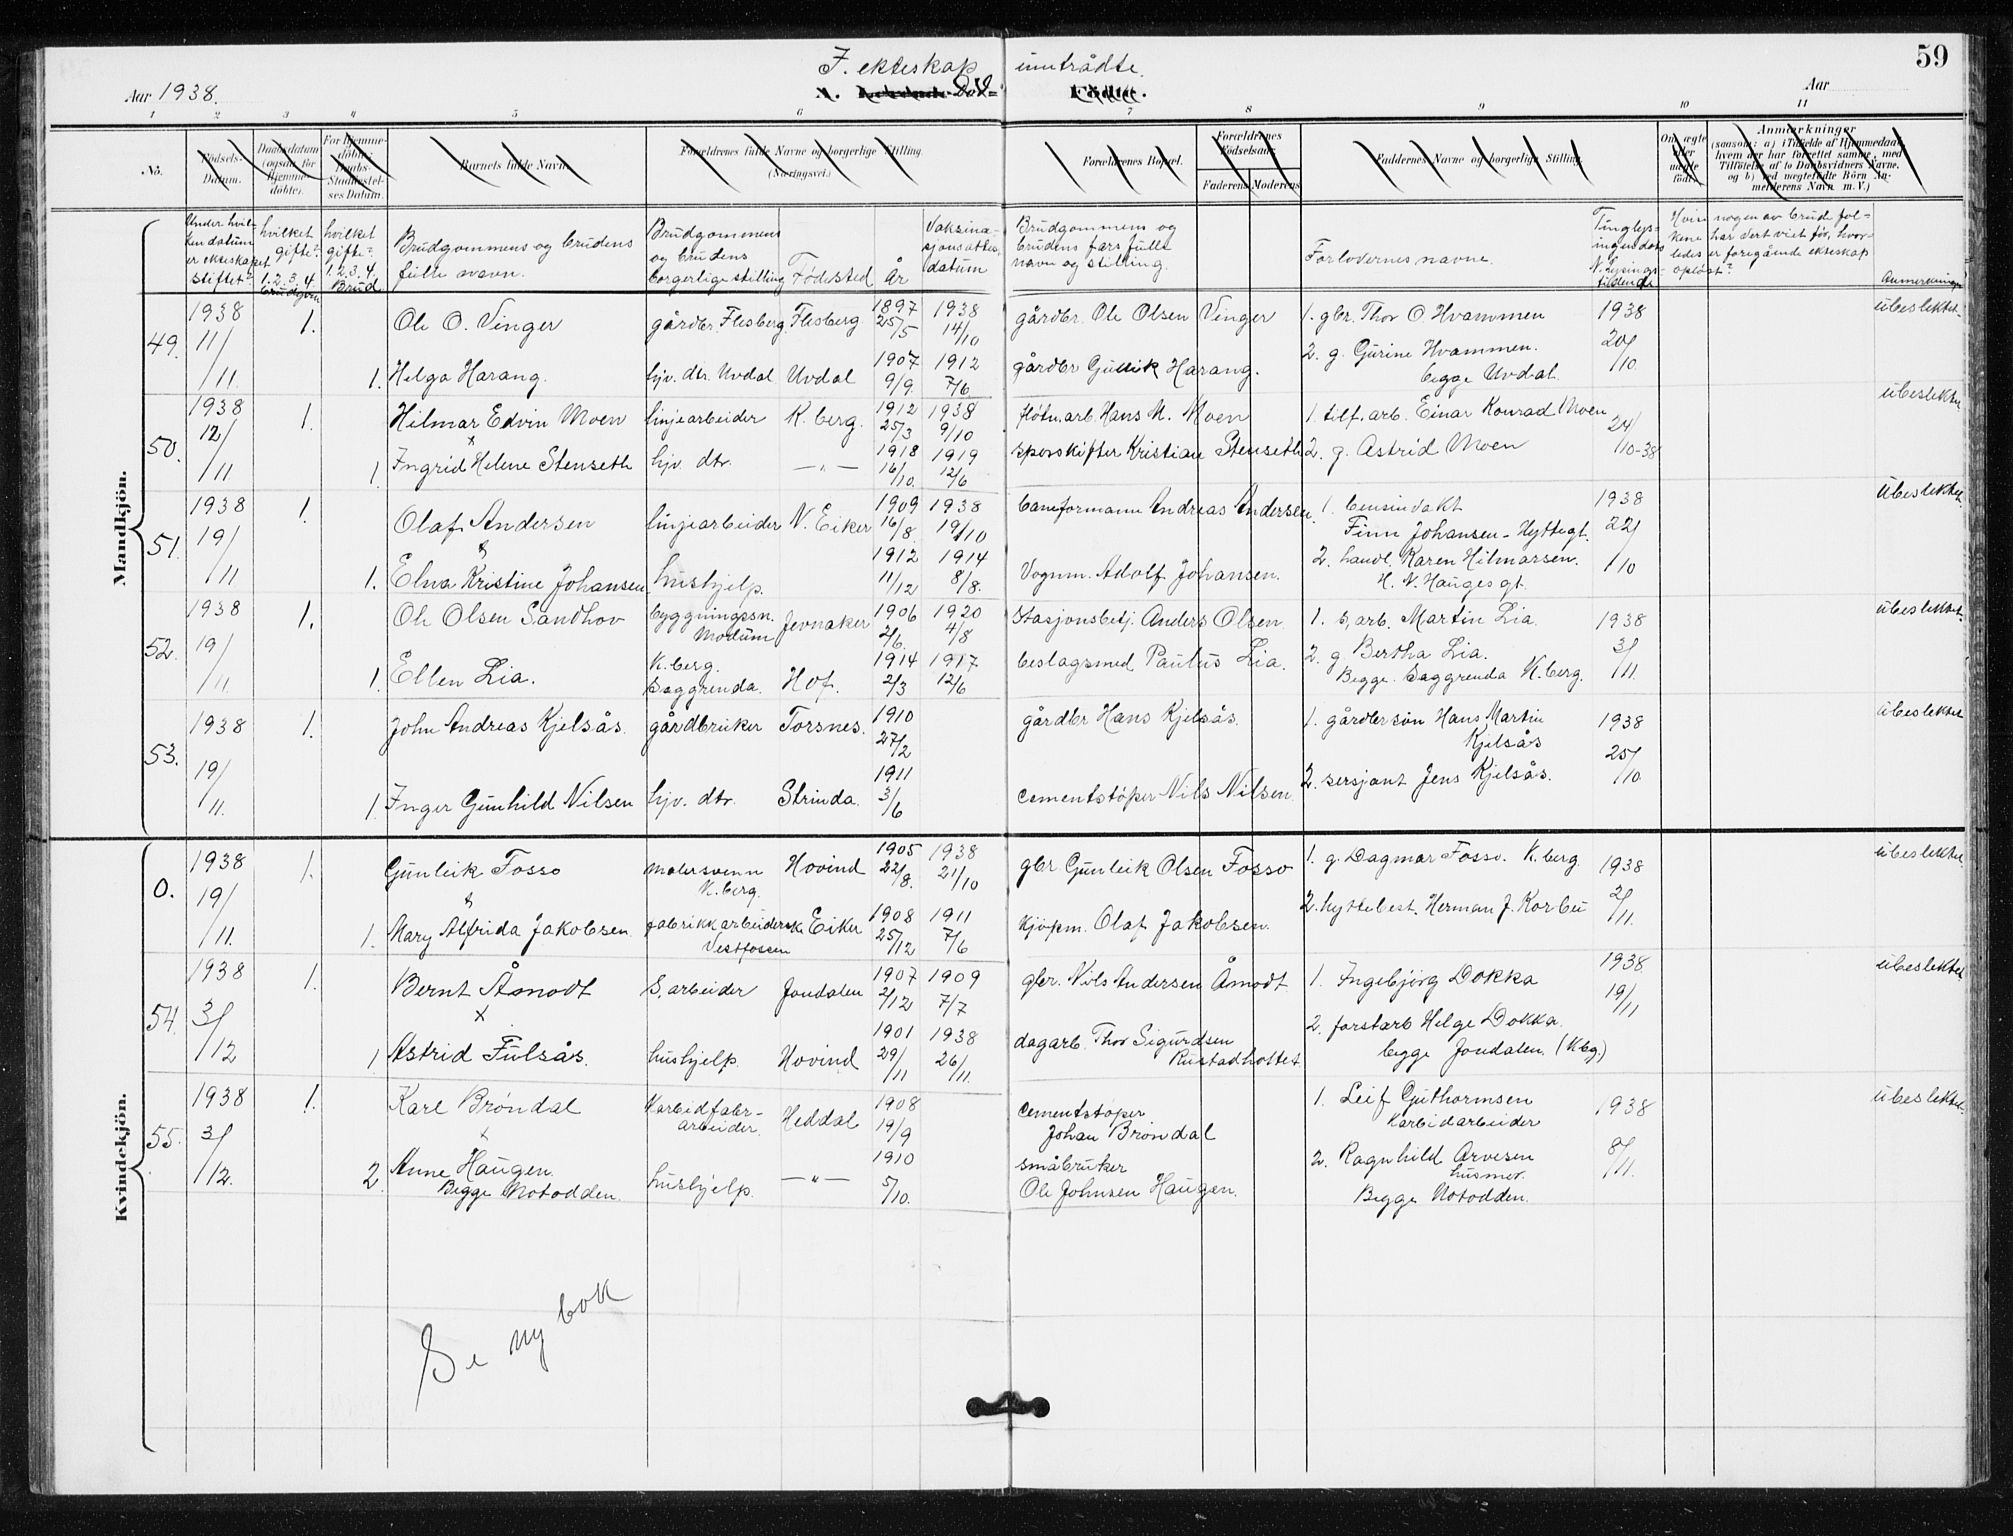 59
F. ekteskap inntrådte.
Aar 1938.
Aar
1 2 3 4 5 6 7 8 9 10 11
No.
Fødsels-Datum.
Daabsdatum (ogsaa for Hjemmedøbte).
For Hjemmedøbte: Daabs-Stadfæstelses Datum.
Barnets fulde Navn.
Forældrenes fulde Navne og borgerlige Stilling. (Næringsvei.)
Forældrenes Bopæl.
Forældrenes Fødselsaar.
Faderens Moderens
Faddernes Navne og borgerlige Stilling.
Om ægte eller uægte født.
Anmerkninger
(saasom: a) i Tilfælde af Hjemmedaab, hvem der har forrettet samme, med Tilføielse af to Daabsvidners Navne, og b) ved uægtefødte Børn Anmelderens Navn m. V.)
Under hvilken datum er ekteskapet stiftet?
hvilket gifte? 1.2.3.4. Brudgom
hvilket gifte? 1.2.3.4. Brud.
Brudgommens og brudens fulle navn.
Brudgommens og brudens borgerlige stilling
Fødested
År
Vaksinasjonsattest datum
Brudgommens og brudens fars fulle navn og stilling.
Forlovernes navne.
Hvis nogen av brudfolkene har vert viet før, hvorledes er foregående ekteskap opløst?
Anmerkninger
Mandkjön.
49. 1938 11/11 1. Ole O. Vinger gårdbr. Flesberg. Flesberg 1897 25/5 1938 14/10 gårdbr. Ole Olsen Vinger 1. gbr. Thor O. Hvammen 1938 20/10 ubeslektet
1. Helga Harang. hjv. dtr. Uvdal Uvdal 1907 9/9. 1912 7/6 gårdbr Gullik Harang. 2. g. Gurine Hvammen.
begge Uvdal.
50. 1938 12/11 1. Hilmar Edvin Moen linjearbeider K.berg. 1912 25/3 1938 9/10 fløtn.arb. Hans M. Moen 1. tilf. arb. Einar Konrad Moen 24/10-38 ubeslektet
1 Ingrid Helene Stenseth hjv. dtr. —"— 1918 16/10. 1919 12/6 sporskifter Kristian Stenseth 2. g. Astrid Moen
51. 1938 19/11 1. Olaf Andersen linjearbeider N. Eiker 1909 16/8. 1938 19/10 baneformann Andreas Andersen 1. bensinvakt 1938 22/10 ubeslektet
Finn Johansen - Hyttegt.
&
1. Elna Kristine Johansen hushjelp. 1912 11/12 1914 8/8. Vognm. Adolf Johansen. 2. handl. Karen Hilmarsen.
H. N. Hauges gt.
52. 1938 19/11 1. Ole Olsen Sandhov bygningssn. Modum Jevnaker 1906 2/6. 1920 4/8 Stasjonsbetj. Anders Olsen 1. s. arb. Martin Lia 1938 3/11. ubeslektet
1. Ellen Lia. K.berg. Saggrenda. Hof. 1914 2/3 1917 12/6 beslagsmed Paulus Lia. 2. g Bertha Lia.
Begge. Saggrenda K.berg.
53. 1938 19/11. 1. John Andreas Kjelsås. gårdbruker Torsnes. 1910 27/2 gårdbr Hans Kjelsås. 1. gårdbr søn Hans Martin Kjelsås 1938 25/10 ubeslektet
1. Inger Gunhild Nilsen hjv. dtr. Strinda. 1911 3/6 cementstøper Nils Nilsen. 2. sersjant Jens Kjelsås.
Kvindekjön.
0. 1938 19/11. 1. Gunleik Fosso malersvenn K.berg. Hovind 1905 22/8. 1938 21/10 gbr. Gunleik Olsen Fosso 1. g. Dagmar Fosso. K.berg 1938 2/11. ubeslektet
&
1. Mary Alfrida Jakobsen. fabrikkarbeiderske Vestfossen Eiker 1908 25/12 1911 7/6 kjøpm. Olaf Jakobsen. 2. hyttebest. Herman J. Korbu
54. 1938 3/12 1. Bernt Åmodt S. arbeider Jondalen 1907 2/12 1909 7/7 gbr. Nils Andersen Åmodt 1. Ingebjörg Dokka 1938 19/11 ubeslektet
x
1 Astrid Fulsås. hushjelp. Hovind 1901 29/11 1938 26/11. dagarb. Thor Sigurdsen 2. forstarb Helge Dokka.
begge Jondalen. (Kbg.)
55. 1938 3/12. 1. Karl Brøndal Karbidfabr-arbeider. Heddal 1908 19/9 cementstøper Johan Brøndal 1. Leif Guthormsen Karbidarbeider 1938 8/11. ubeslektet.
x
2. Anne Haugen. hushjelp. —"— 1910 5/10. småbruker Ole Johnsen Haugen. 2. Ragnhild Arvesen husmor.
Begge Notodden. Begge Notodden.
Se ny bok